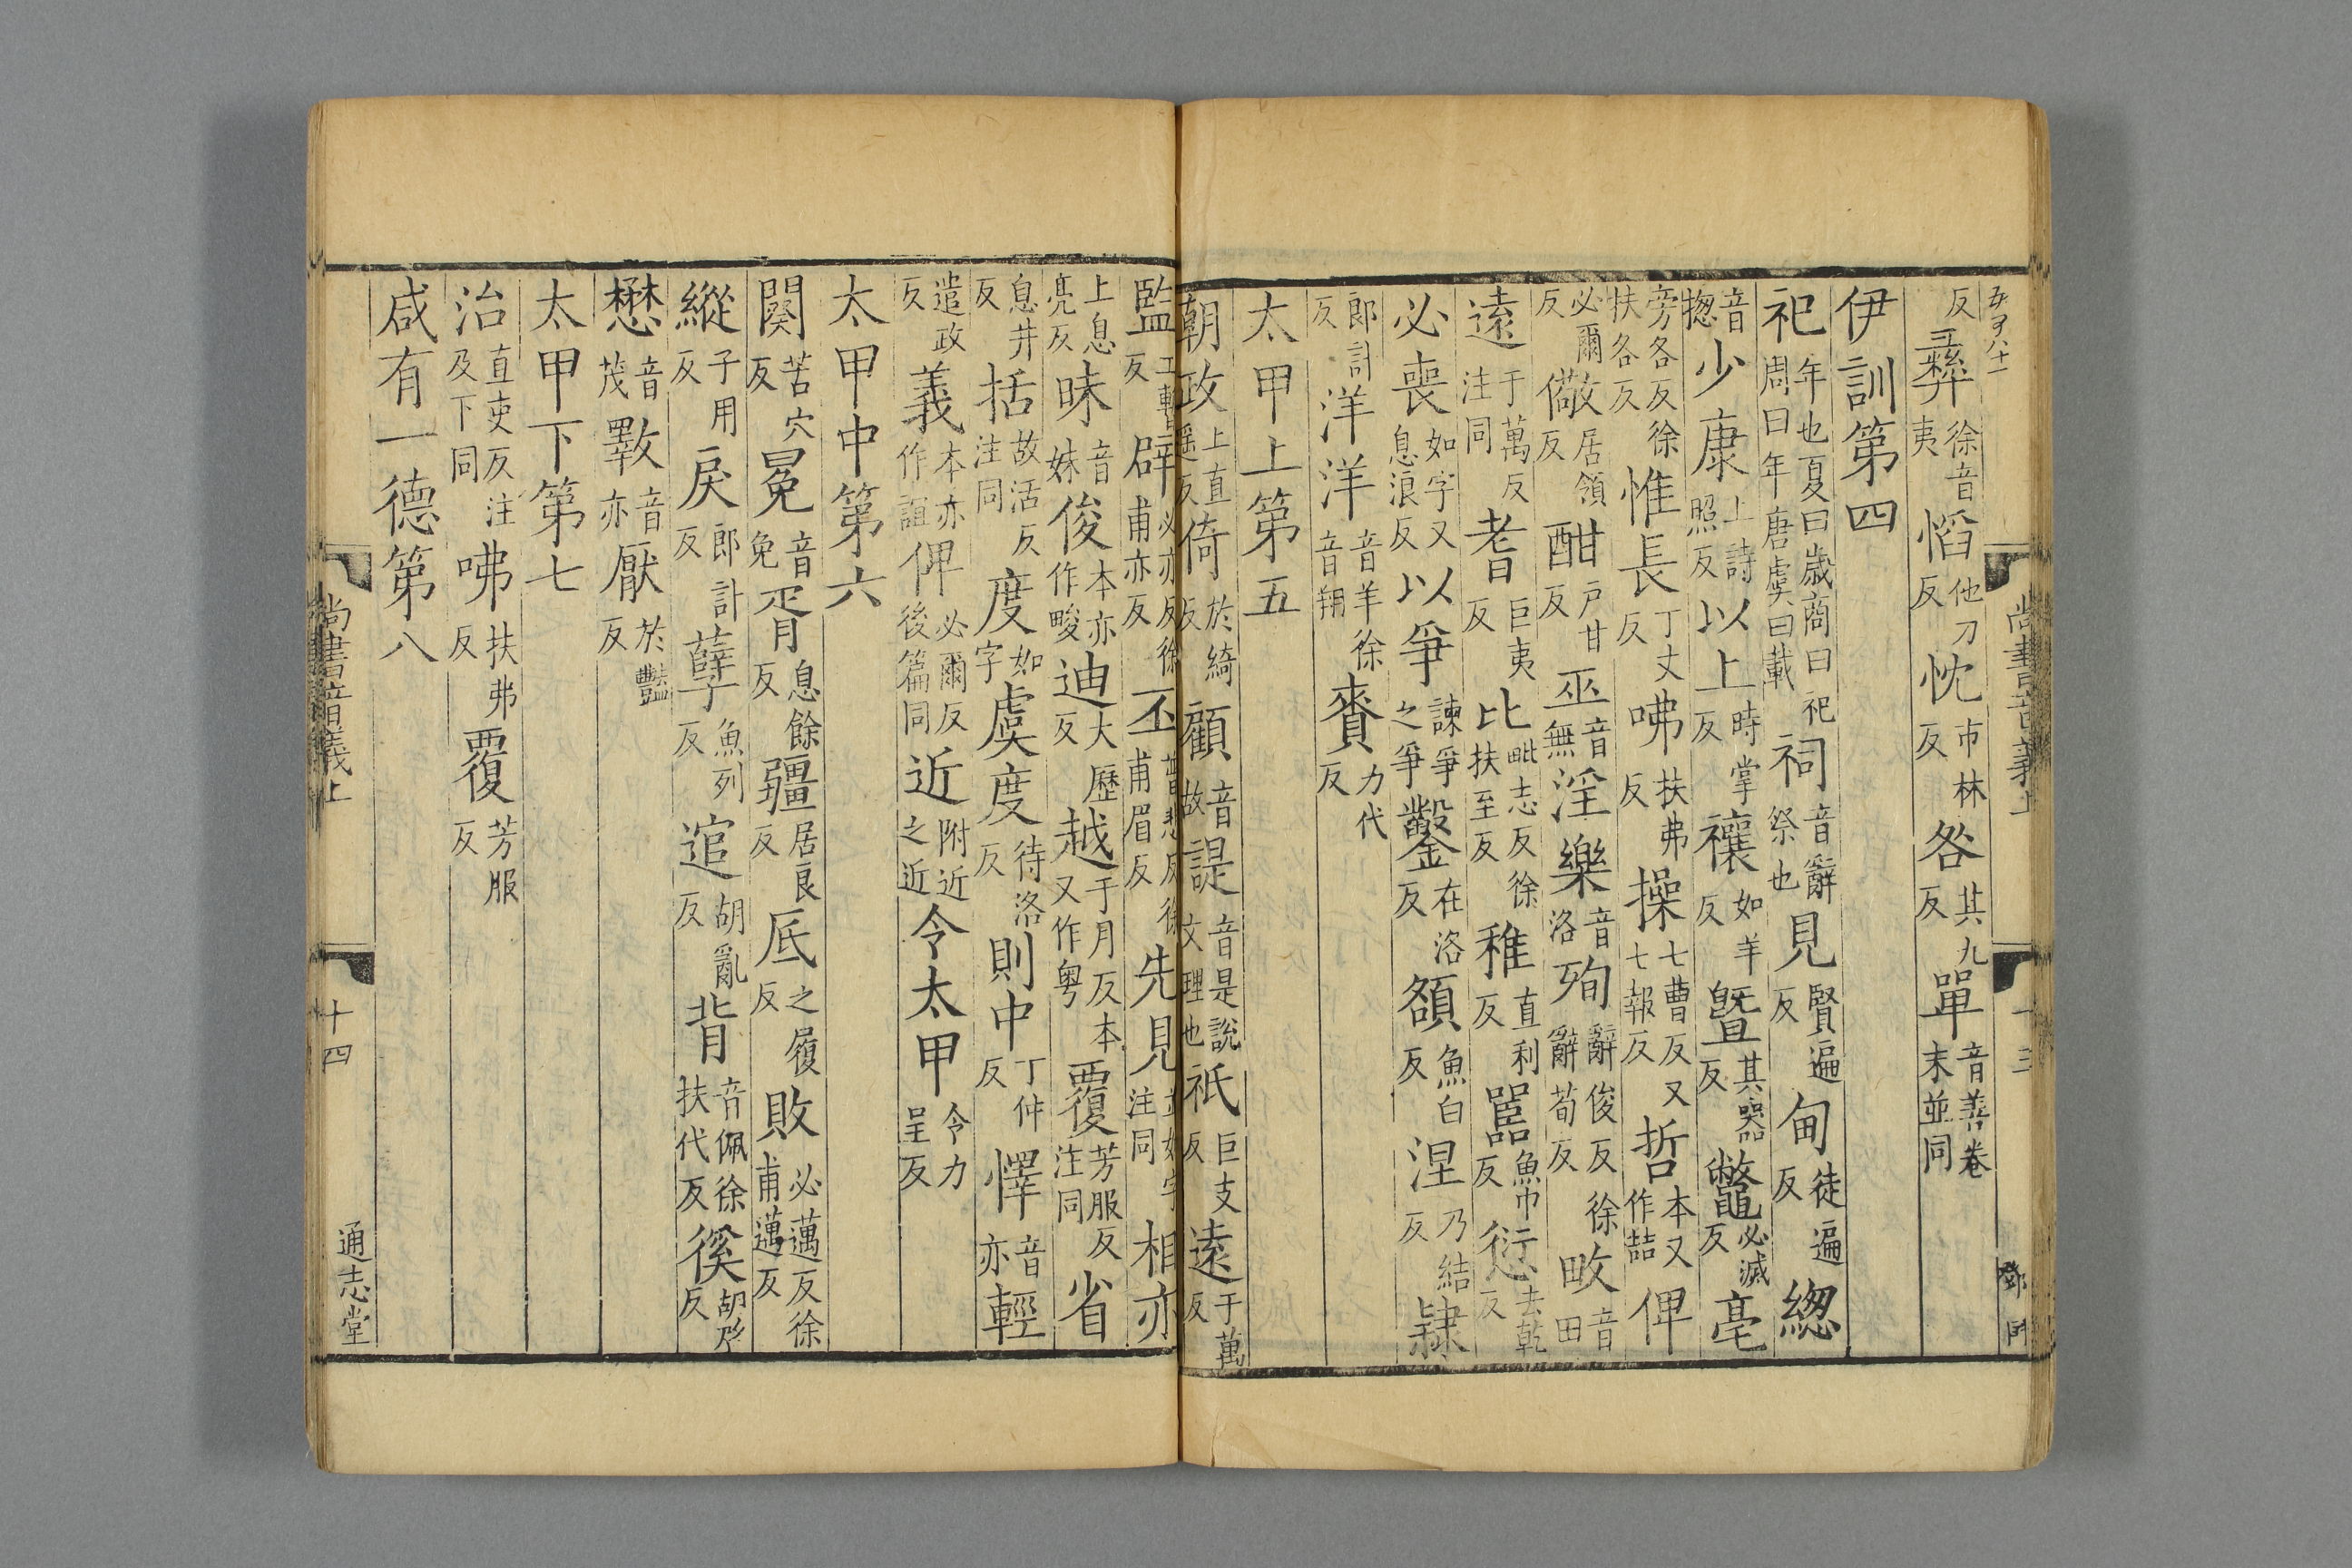 反彞徐音夷慆他刀反忱市林反咎其九反單音善卷末並同
伊訓第四
祀年也夏曰歲商曰祀周曰年唐虞曰載祠音辭祭也見賢遍反甸徒遍反緫
音揔少康上詩照反以上時掌反禳如羊反曁其器反鼈必滅反亳
旁各反徐扶各反惟長丁丈反咈扶弗反操七曹反又七報反哲本又作喆俾
必爾反儆居領反酣戶甘反巫音無淫樂音洛殉辭俊反徐辭荀反畋音田
遠于萬反注同耆巨夷反比毗志反徐扶至反稚直利反嚚魚巾反愆去乾反
必喪如字又息浪反以爭諫爭之爭鑿在洛反頟魚白反涅乃結反隸
郎計反洋洋音羊徐音翔賚力代反
太甲上第五
朝政上直遥反倚於綺反顧音故諟音是說文理也祇巨支反遠于萬反
監工暫反辟必亦反徐甫亦反丕普悲反徐甫眉反先見並如字注同相亦
上息亮反昧音妹俊本亦作畯迪大歷反越于月反本又作粵覆芳服反注同省
息井反括故活反注同度如字虞度待洛反則中丁仲反懌音亦輕
遣政反義本亦作誼俾必爾反後篇同近附近之近令太甲令力呈反
太甲中第六
闋苦穴反冕音免胥息餘反疆居良反底之履反敗必邁反徐甫邁反
縱子用反戾郎計反孽魚列反逭胡亂反背音佩徐扶代反徯胡啓反
懋音茂斁音亦厭於豔反
太甲下第七
治直吏反注及下同咈扶弗反覆芳服反
咸有一德第八
尚書音義上
十三
尚書音義上
十四
通志堂